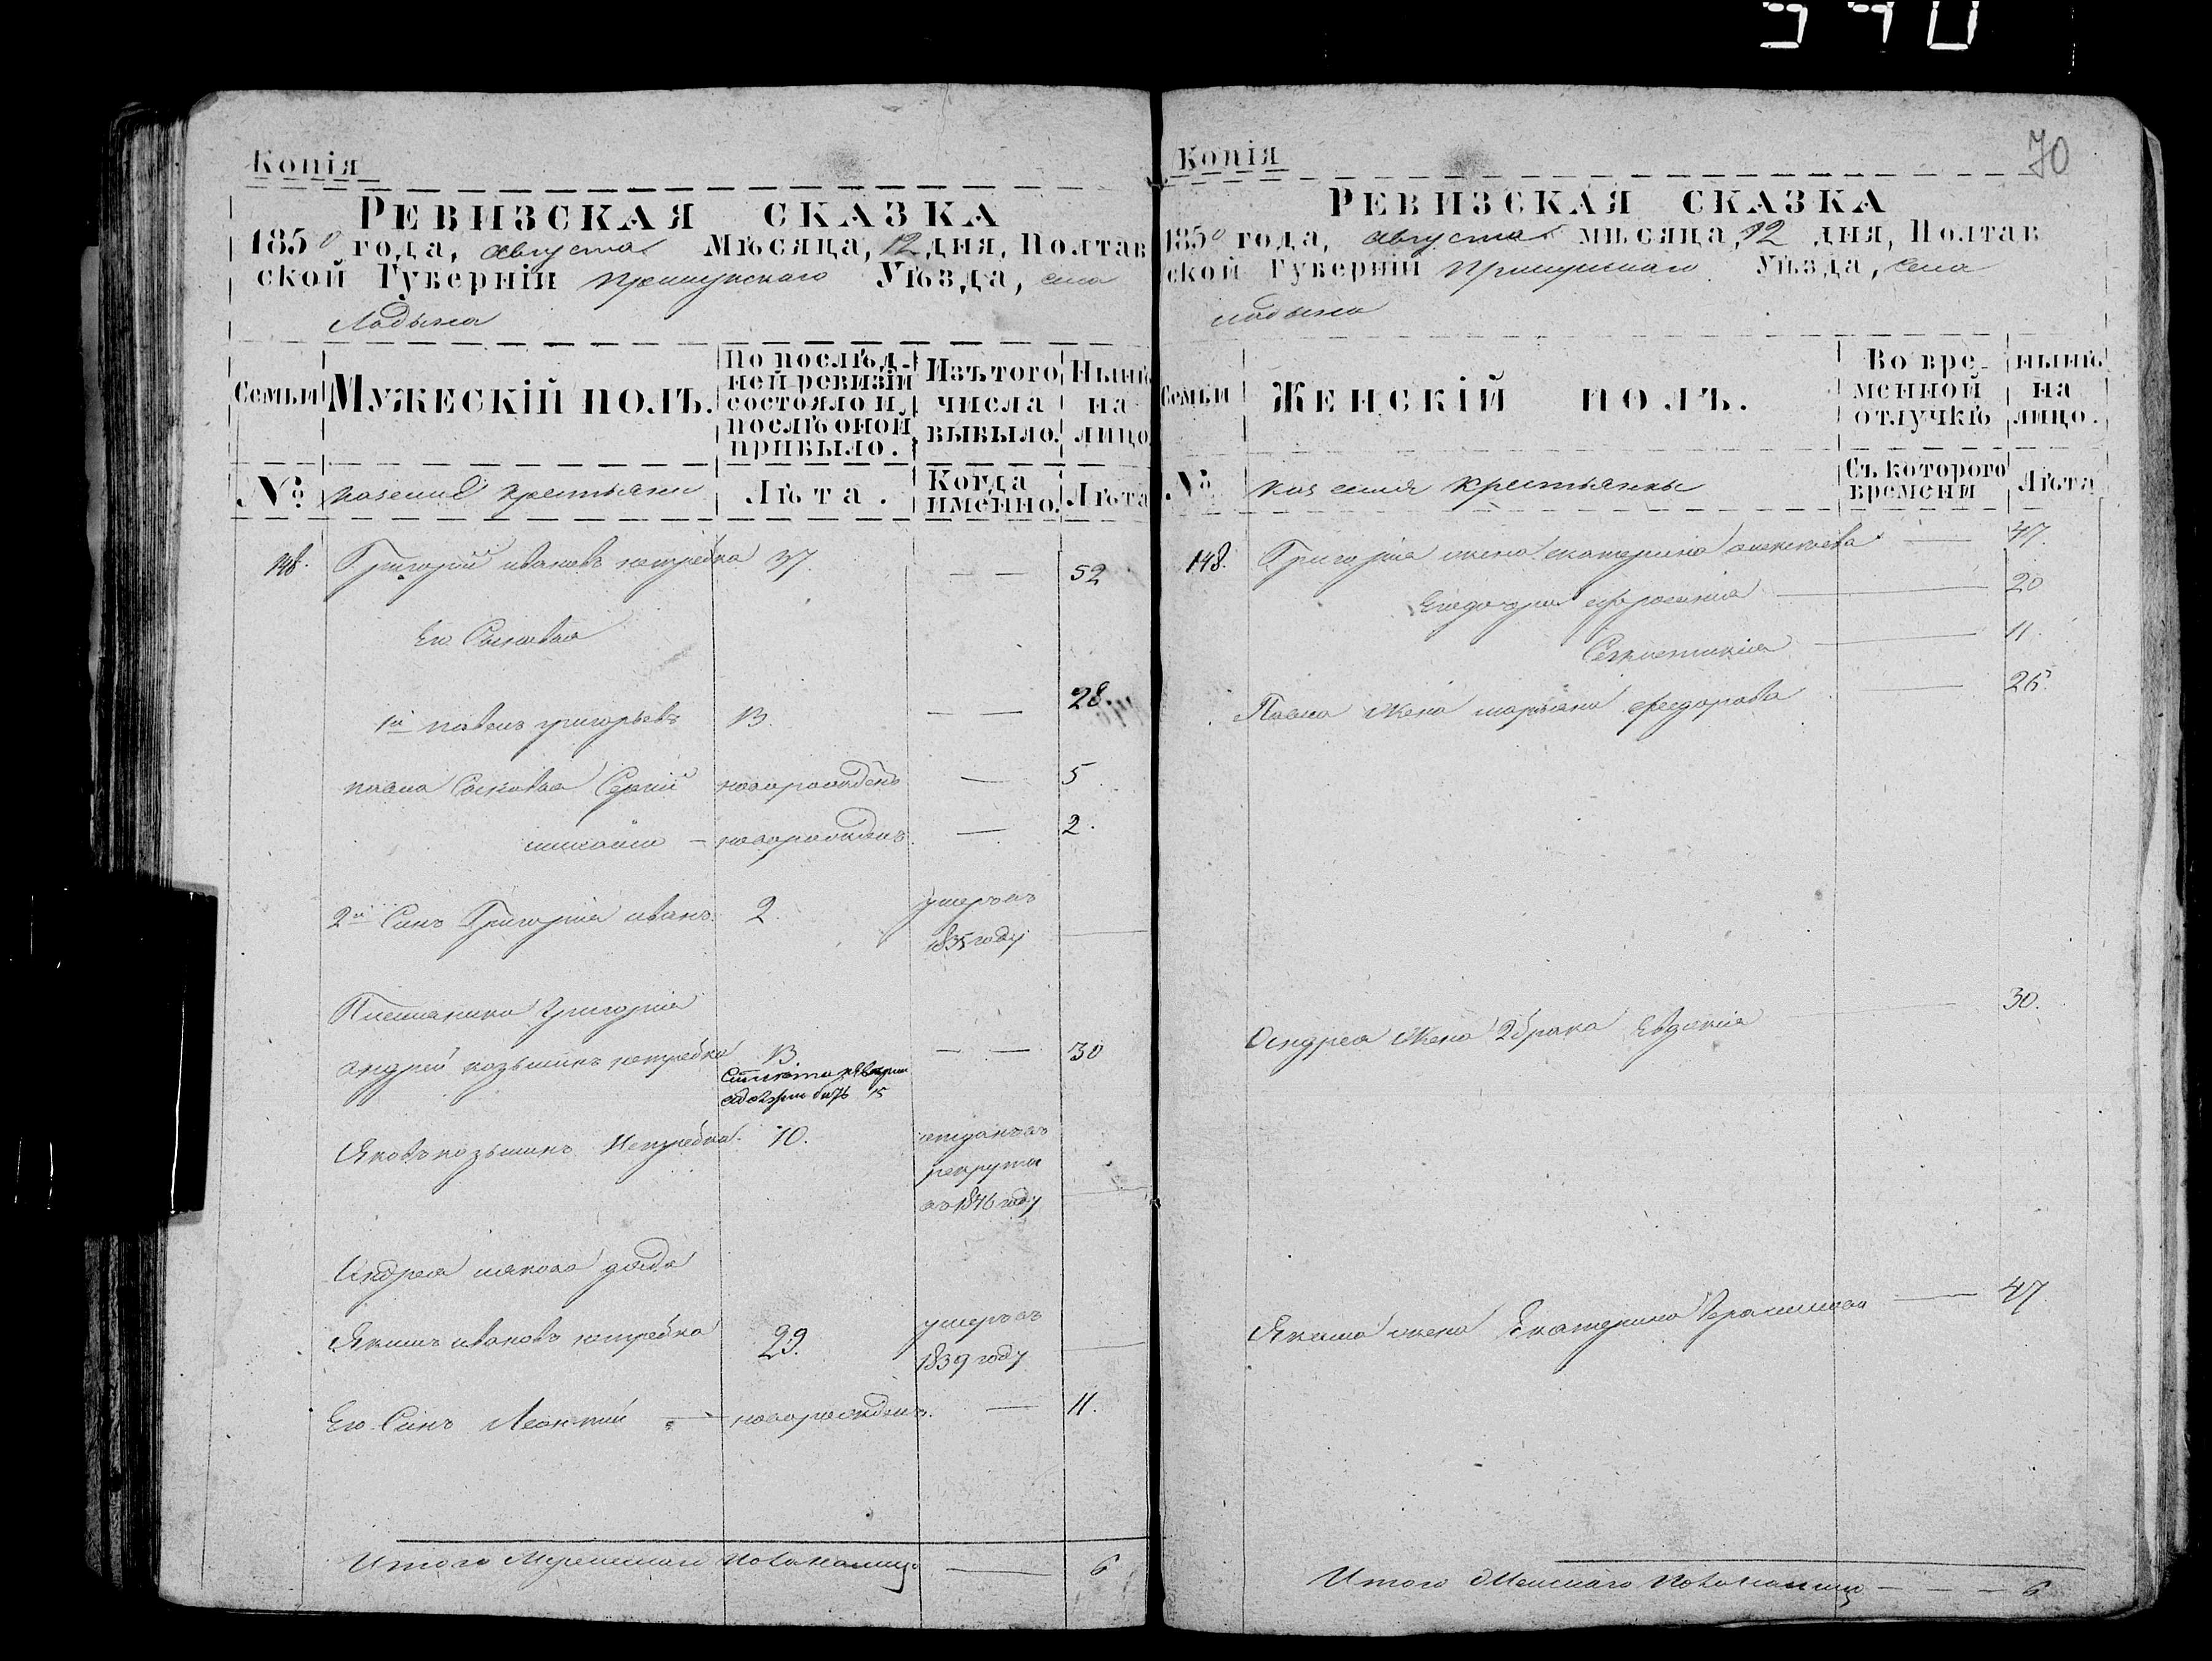 Копія
РЕВИЗСКАЯ СКАЗКА
1850 года, августа Мѣсяца, 12 дня, Полтав
ской Губерніи Прилуцкаго Уѣзда, села
Ладына
Семьи
МУЖЕСКІЙ ПОЛЪ.
По послѣд-
ней ревизіи
состояло и
послѣ оной
прибыло.
Изъ того
числа
выбыло.
Нынѣ
на
лицо
№
казенние крестьяни
Лѣта.
Когда
именно.
Лѣта
148. Григорій ивановъ нетребка 37. — — 52
Его Сыновья
1й павелъ григорьевъ 13. — — 28.
павла Сыновья Сергій новорожденъ — 5
михайло — новорожденъ — 2.
2й Синъ Григорія иванъ. 2. умеръ въ
1835 году —
Племяники Григорія
андрей козьминъ нетребка 13 — — 30
15
Яковъ козьминъ Нетребка 10. отданъ въ
рекрути
въ 1846 году —
Андрея иякова дядя
Якимъ ивановъ нетребка 29. умеръ въ
1839 году —
Его Синъ Леонтій — новорожденъ. — 11.
Итого Мужескаго пола налицо — 6
Копія
70
РЕВИЗСКАЯ СКАЗКА
1850 года, августа мѣсяца, 12 дня, Полтав
ской Губерніи Прилуцкаго Уѣзда, села
ладына
Семьи
ЖЕНСКІЙ ПОЛЪ.
Во вре-
менной
отлучкѣ
нынѣ
на
лицо.
№
казенния крестьянки
Съ котораго
времени
Лѣта
148. Григорія жена екатерина алексѣева — 47.
Егодочери ефросинія — 20
— 11.
Павла Жена марьяна федорова — 26.
Андрея Жена 2 брака Евдокія — 30.
Якима жена Екатерина Герасимова — 47.
Итого Женскаго пола налицо — — — 6